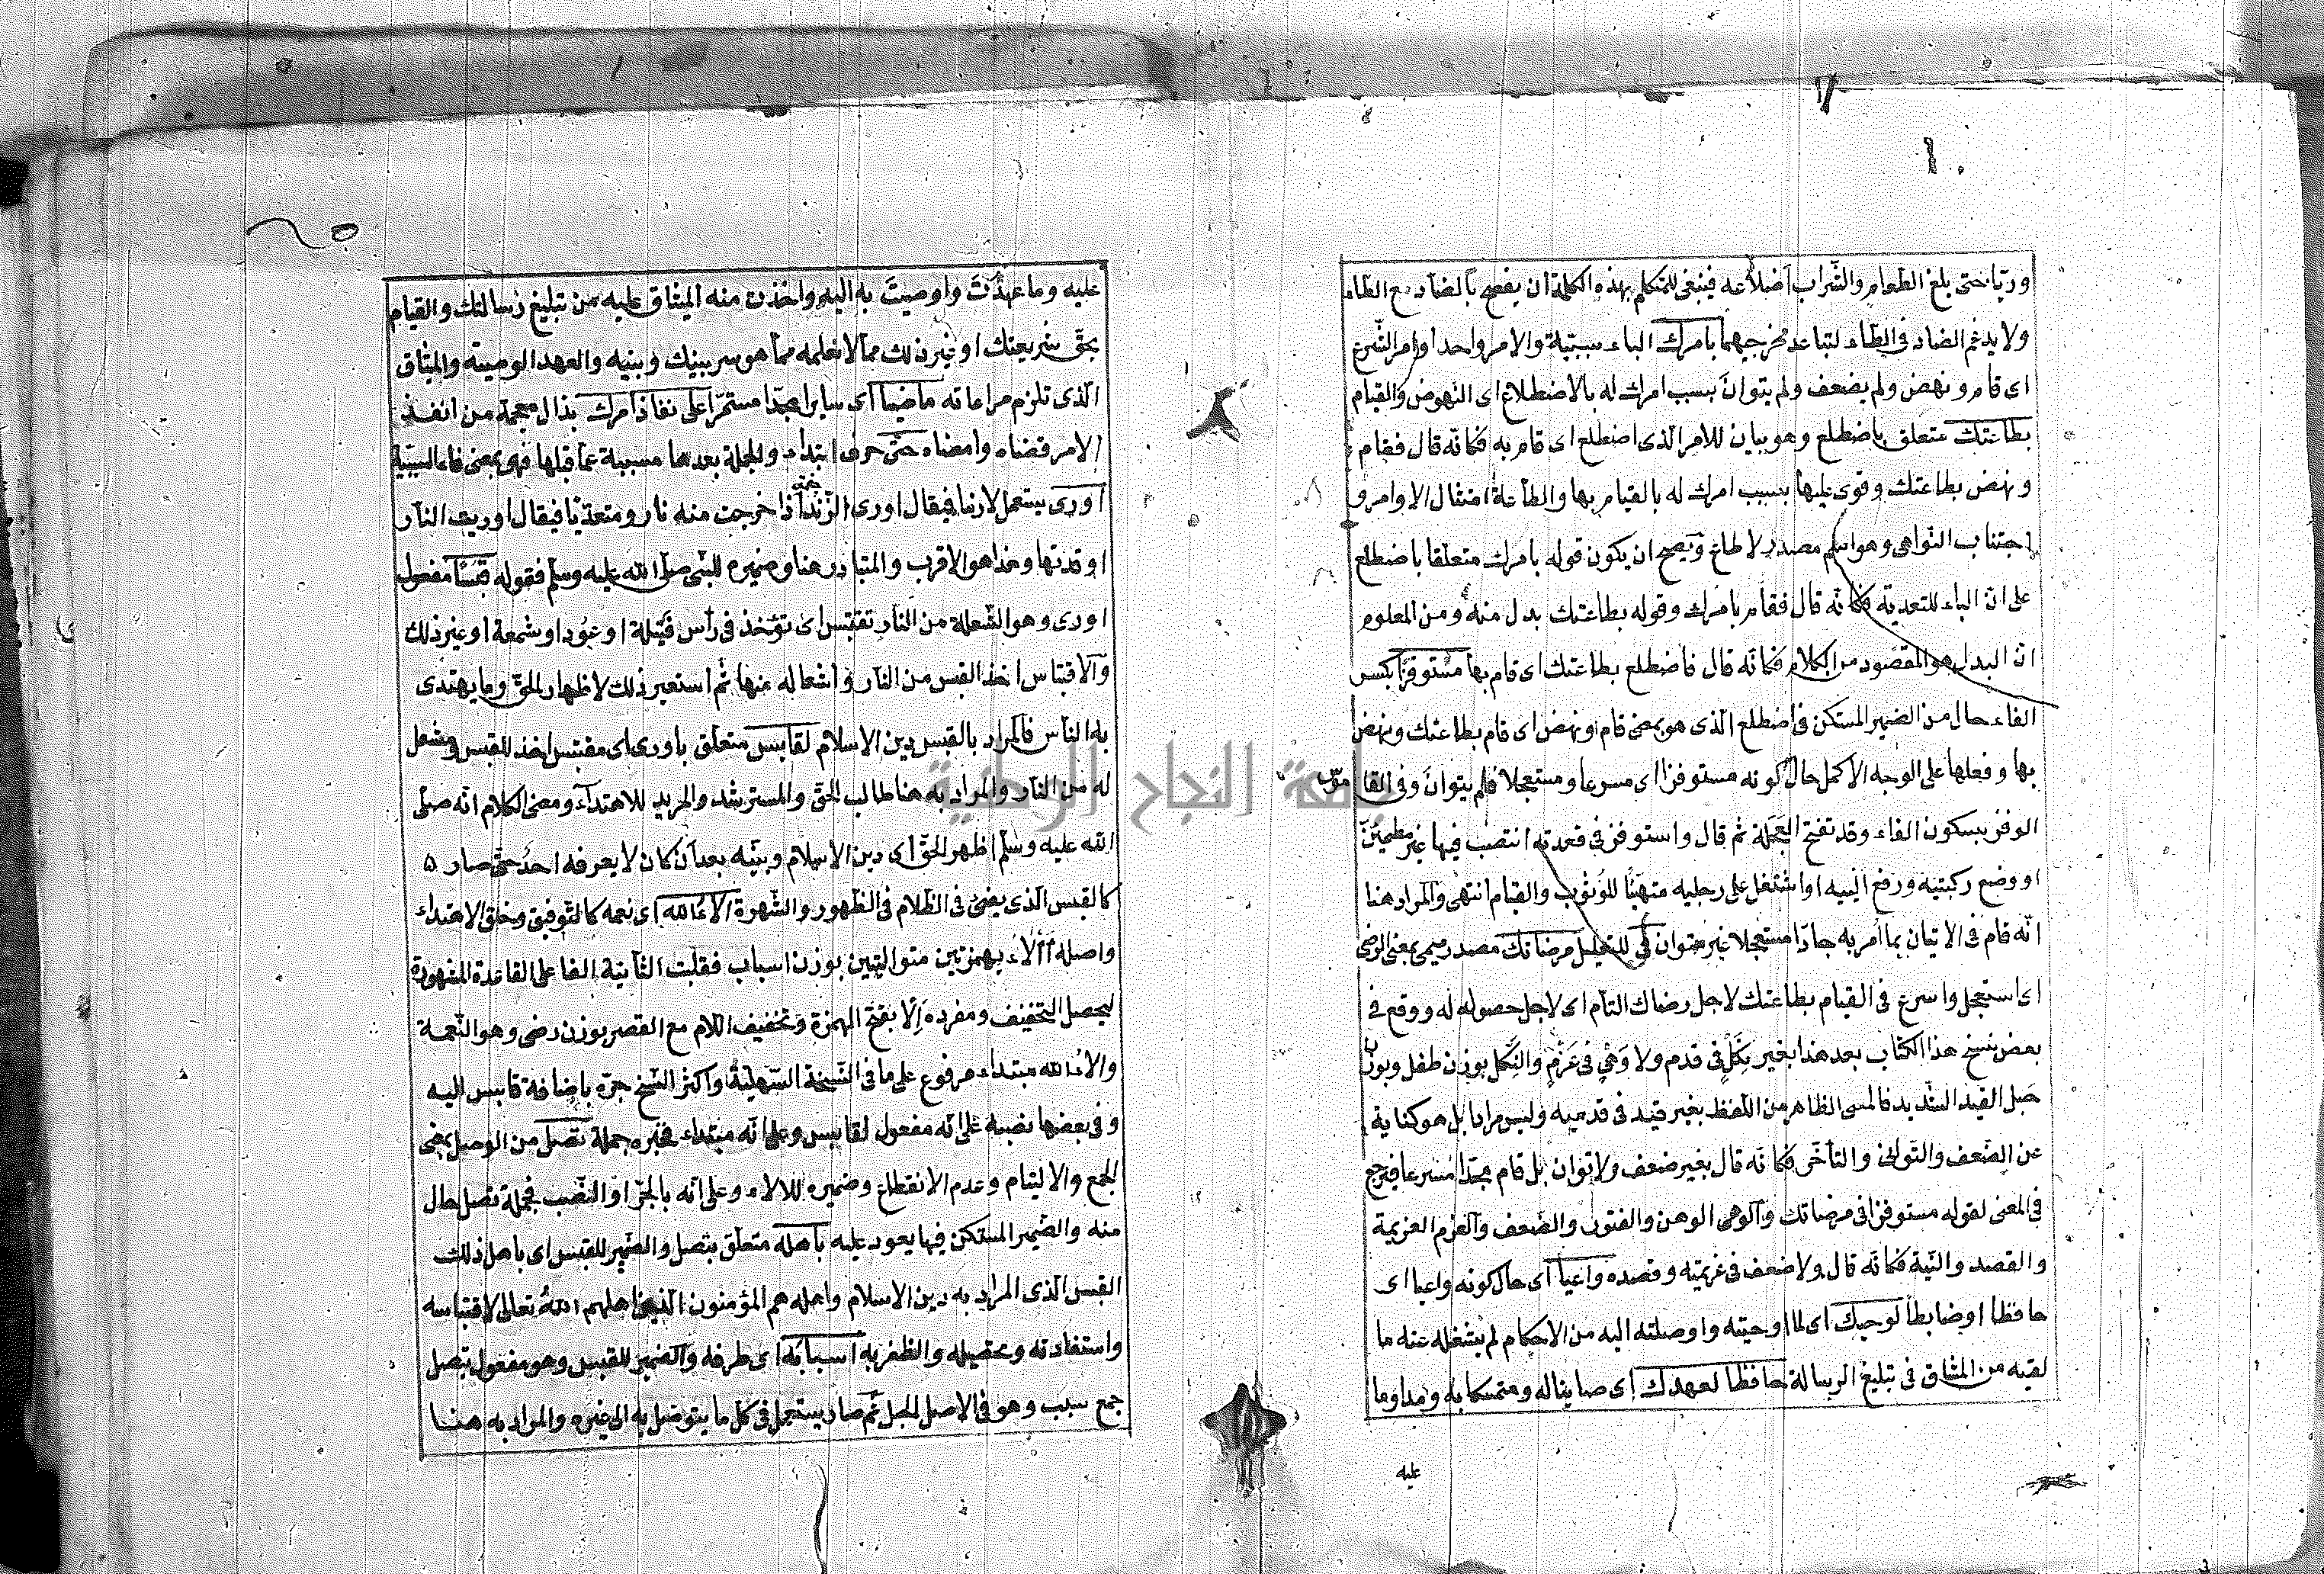 ١٠
وريا حتى بلغ الطعام والشراب اضلاعه فينبغى للمتكلم بهذه الكلمة ان يفصح بالضاد مع الطاء
ولا يدغم الضاد فى الطاء لتباعد مخرجيهما بامرك الباء سببية والامر واحد اوامر الشرع
اى قام ونهض ولم يضعف ولم يتوان بسبب امرك له بالاضطلاع اى النهوض والقيام
بطاعتك متعلق باضطلع وهو بيان للامر الذى اضطلع اى قام به فكانه قال فقام
ونهض بطاعتك وقوى عليها بسبب امرك له بالقيام بها والطاعة امتثال الاوامر و
اجتناب النواهى وهو اسم مصدر لاطاع ويصح ان يكون قوله بامرك متعلقا باضطلع
على ان الباء للتعدية فكانه قال فقام بامرك وقوله بطاعتك بدل منه ومن المعلوم
ان البدل هو المقصود من الكلام فكانه قال فاضطلع بطاعتك اى قام بها مستوفزا بكسر
الفاء حال من الضمير المستكن فى اضطلع الذى هو بمعنى قام او نهض اى قام بطاعتك ونهض
بها وفعلها على الوجه الاكمل حال كونه مستوفزا اى مسرعا ومستعجلا فلم يتوان وفى القاموس
الوفز بسكون الفاء وقد تفتح العجلة ثم قال واستوفز فى قعدته انتصب فيها غير مطمئن
او وضع ركبتيه ورفع اليتيه او اشتغل على رجليه متهيئا للوثوب والقيام انتهى والمراد هنا
انه قام فى الاتيان بما أمر به جادا مستعجلا غير متوان فى للتعليل مرضاتك مصدر ميمى بمعنى الرضى
اى استعجل واسرع فى القيام بطاعتك لاجل رضاك التام اى لاجل حصوله له ووقع فى
بعض نسخ هذا الكتاب بعد هذا بغير نكل فى قدم ولا وهي فى عزم والنكل بوزن طفل وبوزن
حبل القيد الشديد فالمعنى الظاهر من اللفظ بغير قيد فى قدميه وليس مرادا بل هو كناية
عن الضعف والتوانى والتأخر فكانه قال بغير ضعف ولا توان بل قام مجدا مسرعا فيرجع
فى المعنى لقوله مستوفزا فى مرضاتك والوهى الوهن والفتور والضعف والعزم العزيمة
والقصد والنية فكانه قال ولا ضعف فى عزيمته وقصده واعيا اى حال كونه واعيا اى
حافظا او ضابطا لوحيك اى لما اوحيته واوصلته اليه من الاحكام لم يشغله عنه ما
لقيه من المشاق فى تبليغ الرسالة حافظا لعهدك اى صاينا له ومتمسكا به ومداوما
عليه
عليه وما عهدت واوصيت به اليه واخذت منه الميثاق عليه من تبليغ رسالتك والقيام
بحق شريعتك او غير ذلك مما لا نعلمه مما هو سر بينك وبينه والعهد الوصية والميثاق
الذى تلزم مراعاته ماضيا اى سايرا مجدا مستمرا على نفاذ امرك بذال معجمة من انفذ
الامر قضاه وامضاه حتى حرف ابتداء والجملة بعدها مسببة عما قبلها فهى بمعنى فاء السببية
اورى يستعمل لازما فيقال اورى الزند اذا خرجت منه نار ومتعديا فيقال اوريت النار
اوقدتها وهذا هو الاقرب والمتبادر هنا وضميره للنبى صلى الله عليه وسلم فقوله قبسا مفعول
اورى وهو الشعلة من النار تقتبس اى تؤخذ فى رأس فتيلة او عود او شمعة او غير ذلك
والاقتباس اخذ القبس من النار واشعاله منها ثم استعير ذلك لاظهار الحق وما يهتدى
به الناس فالمراد بالقبس دين الاسلام لقابس متعلق باورى اى مقتبس اخذ للقبس ومشعل
له من النار والمراد به هنا طالب الحق والمسترشد والمريد للاهتداء ومعنى الكلام انه صلى
الله عليه وسلم اظهر الحق اى دين الاسلام وبينه بعد ان كان لا يعرفه احد حتى صار ه
كالقبس الذى يضئ فى الظلام فى الظهور والشهرة الاء الله اى نعمه كالتوفيق وخلق الاهتداء
واصله أألاء بهمزتين متواليتين بوزن اسباب فقلبت الثانية الفا على القاعدة المشهورة
ليحصل التخفيف ومفرده إلا بفتح الهمزة وتخفيف اللام مع القصر بوزن رضى وهو النعمة
والاء الله مبتداء مرفوع على ما فى النسخة السهلية واكثر النسخ جره باضافة قابس اليه
وفى بعضها نصبه على انه مفعول لقابس وعلى انه مبتداء فخبره جملة تصل من الوصل بمعنى
الجمع والالتيام وعدم الانقطاع وضميره للالاء وعلى انه بالجر او النصب فجملة تصل حال
منه والضمير المستكن فيها يعود عليه باهله متعلق بتصل والضمير للقبس اى باهل ذلك
القبس الذى المراد به دين الاسلام واهله هم المؤمنون الذين اهلهم الله تعالى لاقتباسه
واستفادته وتحصيله والظفر به اسبابه اى طرفه والضمير للقبس وهو مفعول تصل
جمع سبب وهو فى الاصل الحبل ثم صار يستعمل فى كل ما يتوصل به الى غيره والمراد به هنا
جامعة النجاح الوطنية